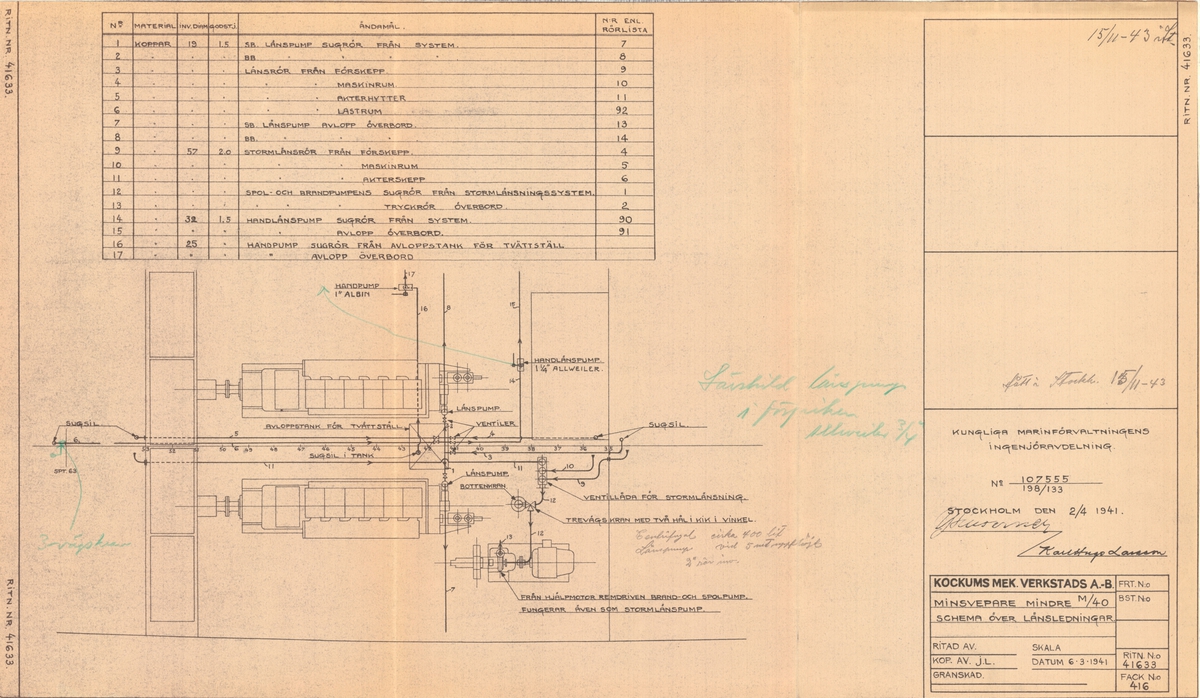 RITN. NR. 41633.
Nº MATERIAL INV. DIAM. GODST. ÄNDAMÅL. N:R ENL. RÖRLISTA
1 KOPPAR 19 1.5 SB. LÄNSPUMP SUGRÖR FRÅN SYSTEM. 7
2 " " " BB. " " " " 8
3 " " " LÄNSRÖR FRÅN FÖRSKEPP 9
4 " " " " " MASKINRUM 10
5 " " " " " AKTERHYTTER 11
6 " " " " " LASTRUM 92
7 " " " SB. LÄNSPUMP AVLOPP ÖVERBORD. 13
8 " " " BB. " " " 14
9 " 57 2.0 STORMLÄNSRÖR FRÅN FÖRSKEPP. 4
10 " " " " " MASKINRUM 5
11 " " " " " AKTERSKEPP 6
12 " " " SPOL- OCH BRANDPUMPENS SUGRÖR FRÅN STORMLÄNSNINGSSYSTEM. 1
13 " " " " " " TRYCKRÖR ÖVERBORD. 2
14 " 32 1,5 HANDLÄNSPUMP SUGRÖR FRÅN SYSTEM. 90
15 " " " " AVLOPP ÖVERBORD. 91
16 " 25 " HANDPUMP SUGRÖR FRÅN AVLOPPSTANK FÖR TVÄTTSTÄLL
17 " " " " AVLOPP ÖVERBORD
15/11-43
RITN. NR. 41633.
HANDPUMP
1" ALBIN
17
16
8
15
HANDLÄNSPUMP.
1¼" ALLWEILER.
14
LÄNSPUMP
SUGSIL
AVLOPPSTANK FÖR TVÄTTSTÄLL
VENTILER
SUGSIL.
6.
5
4
SPT. 63
11
SUGSIL I TANK
3
11
10
9
LÄNSPUMP
BOTTENKRAN
12
VENTILLÅDA FÖR STORMLÄNSNING.
TREVÄGSKRAN MED TVÅ HÅL I KIK I VINKEL.
13
12
FRÅN HJÄLPMOTOR REMDRIVEN BRAND- OCH SPOLPUMP.
FUNGERAR ÄVEN SOM STORMLÄNSPUMP.
3vägskran
Särskild länspump
i förpiken
Allweiler 3/4"
Centrifugal cirka 400 l/
Länspump vid 5
2" rör inv.
Stockh. 15/11-43
KUNGLIGA MARINFÖRVALTNINGENS
INGENJÖRAVDELNING.
Nº 107555
198/133
STOCKHOLM DEN 2/4 1941.
Karl Hugo Larsson
KOCKUMS MEK. VERKSTADS A.-B.
FRT. N:o
MINSVEPARE MINDRE M/40
BST. N:o
SCHEMA ÖVER LÄNSLEDNINGAR
RITAD AV.
SKALA
KOP. AV. J.L.
DATUM 6-3-1941
RITN. N:o
41633
GRANSKAD.
FACK N:o
416
RITN. NR. 41633.